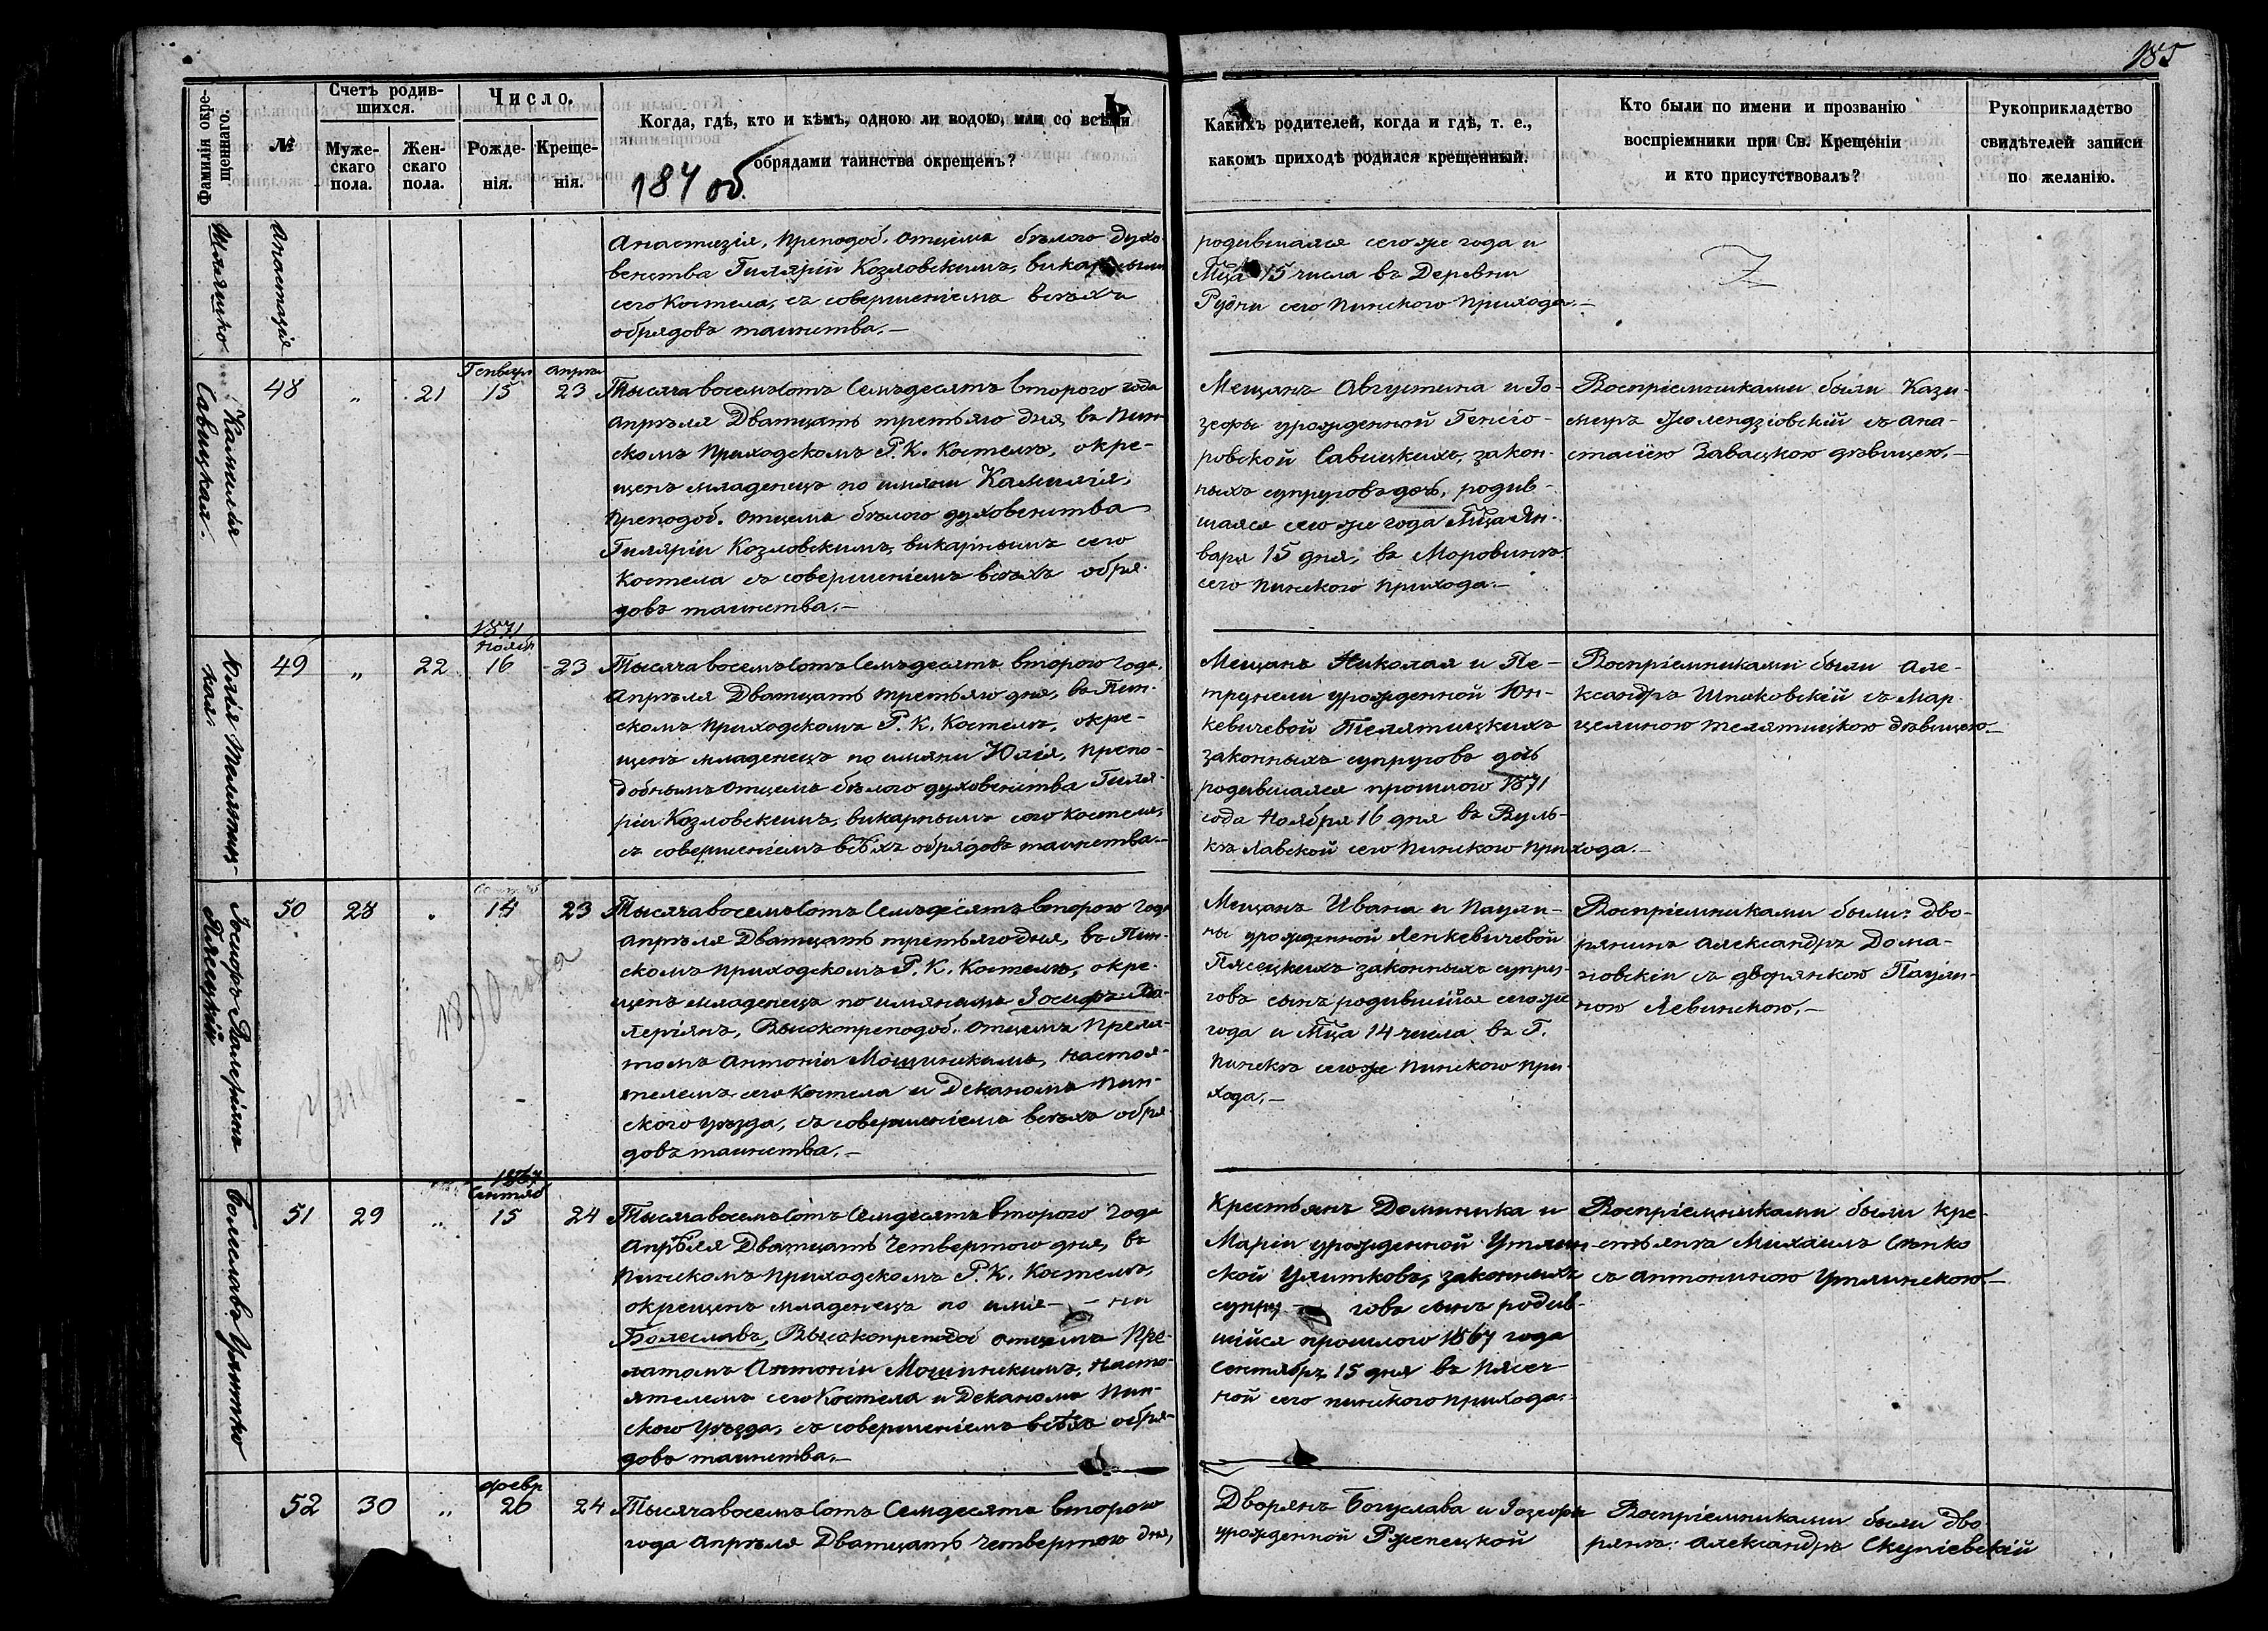 185
Фамилія окре-
щеннаго.
№
Счетъ родив-
шихся.
Муже-
скаго
пола.
Жен-
скаго
пола.
Число.
Рожде-
нія.
Креще-
нія.
Когда, гдѣ, кто и кѣмъ, одною ли водою, или со всѣми
обрядами таинства окрещенъ?
184 об.
Какихъ родителей, когда и гдѣ, т. е.,
какомъ приходѣ родился крещенный.
Кто были по имени и прозванію
воспріемники при Св. Крещеніи
и кто присутствовалъ?
Рукоприкладство
свидѣтелей записи
по желанію.
Анастазія
Анастазія, Преподоб. Отцемъ бѣлого Духо-
венства Гилярій Козловскимъ, викарнымъ
сего Костела, съ совершеніемъ всѣхъ
обрядовъ таинства.—
родившаяся сего же года и
Мца 15 числа въ Деревни
Рудни сего Пинского Прихода.—
Камилія
Савицкая.
48
"
21
Генваря
15
Апрѣля
23
Тысяча восемьсотъ Семьдесятъ второго года
Апрѣля Двадцать третьяго дня, въ Пин-
скомъ Приходскомъ Р. К. Костелѣ, окре-
щенъ младенецъ по имяни Камилія,
Преподоб. Отцемъ бѣлого духовенства
Гиляріи Козловскимъ, викарнымъ сего
Костела съ совершеніемъ всѣхъ обря-
довъ таинства.—
Мещанъ Августина и Іо-
зефы урожденной Генсіо-
ровской Савицкихъ, закон-
ныхъ супруговъ дочь, родив-
шаяся сего же года Мца Ян-
варя 15 дня, въ Моровинѣ
сего Пинского Прихода.—
Воспріемниками были Кази-
миръ Жолендзіовскій съ Ана-
стасіею Завацкою дѣвицею.—
Юлія Телятиц-
кая.
49
"
22
1871
Ноябр.
16
23
Тысяча восемьсотъ Семьдесятъ второго года,
Апрѣля Двадцать третьяго дня, въ Пин-
скомъ Приходскомъ Р. К. Костелѣ, окре-
щенъ младенецъ по имяни Юлія, Препо-
добнымъ Отцемъ бѣлого духовенства Гиля-
ріи Козловскимъ, викарнымъ сего Костела,
съ совершеніемъ всѣхъ обрядовъ таинства.—
Мещанъ Николая и Пе-
трунели урожденной Юн-
кевичевой Телятицкихъ
законныхъ супруговъ дочь
родившаяся прошлого 1871
года Ноября 16 дня въ Вуль-
кѣ Лавской сего Пинского Прихода.—
Воспріемниками были Але-
ксандръ Шпаковскій съ Мар-
целиною Телятицкою дѣвицею—
Іосифъ-Валеріянъ
Пясецкій
50
28
"
14
23
1890 года
Тысяча восемьсотъ Семьдесятъ второго года
Апрѣля Двадцать третьяго дня, въ Пин-
скомъ Приходскомъ Р. К. Костелѣ, окре-
щенъ младенецъ по имянамъ Іосифъ-Ва-
леріянъ, Высокопреподоб. Отцемъ Прела-
томъ Антоніи Мошинскимъ, Настоя-
телемъ сего Костела и Деканомъ Пин-
ского уѣзда, съ совершеніемъ всѣхъ обря-
довъ таинства.—
Мещанъ Ивана и Паули-
ны урожденной Ленкевичевой
Пясецкихъ законныхъ супру-
говъ сынъ родившійся сего же
года и Мца 14 числа въ Г.
Пинскѣ сего же Пинского При-
хода.—
Воспріемниками были: дво-
рянинъ Александръ Дома-
новскіи съ дворянкою Паули-
ною Левинскою.—
Болеславъ Улитко
51
29
"
1867
Сентяб
15
24
Тысяча восемьсотъ Семдесятъ второго года
Апрѣля Двадцать Четвертого дня, въ
Пинскомъ Приходскомъ Р. К. Костелѣ,
окрещенъ младенецъ по имя- - ни
Болеславъ, Высокопреподоб Отцемъ Пре-
латомъ Антоніи Мошинскимъ, Насто-
ятелемъ сего Костела и Деканомъ Пин-
ского уѣзда, съ совершеніемъ всѣхъ обря-
довъ таинства.—
Крестьянъ Доминика и
Маріи урожденной Утлин-
ской Улитковъ, законныхъ
супру- говъ сынъ родив-
шійся прошлого 1867 года
Сентябрѣ 15 дня въ Пясеч-
ной сего Пинского Прихода.—
Воспріемниками были кре-
стьянъ Михаилъ Сѣнко
съ Антониною Утлинскою—
52
30
"
Февр
20
24
Тысяча восемьсотъ Семдесятъ второго
года Апрѣля Двадцать четвертого дня,
Дворянъ Богуслава и Іозефы
урожденной Ржепецкой
Воспріемниками были дво-
рянъ: Александръ Скупіевскій